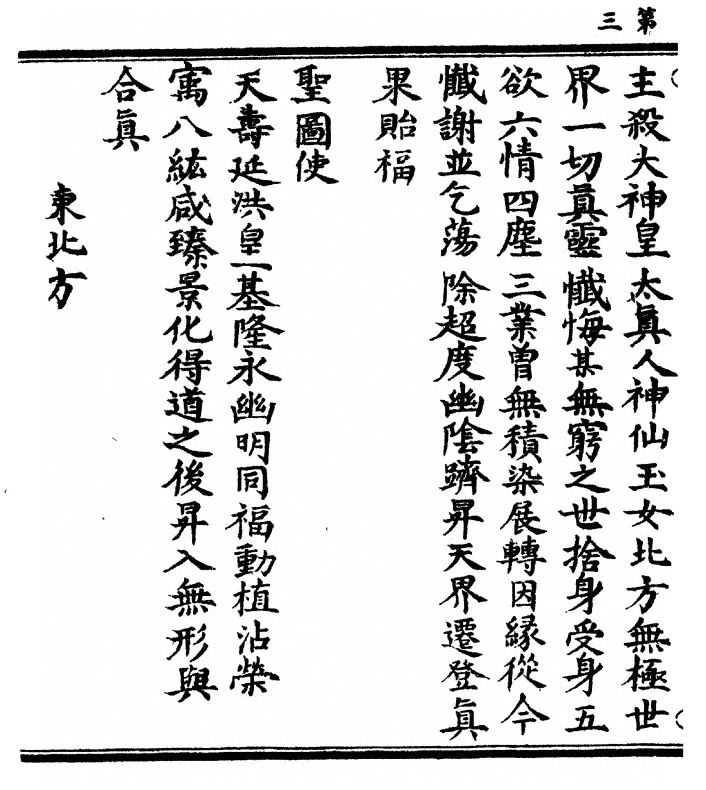 第三
主殺大神皇太眞人神仙玉女北方無極世
界一切眞靈懺悔某無窮之世捨身受身五
欲六情四塵三業曾無積染展轉因緣從今
懺謝並乞蕩除超度幽陰躋昇天界遷登眞
果貽福
聖圖使
天壽延洪皇基隆永幽明同福動植沾榮
寓八紘咸臻景化得道之後昇入無形與
合眞
東北方